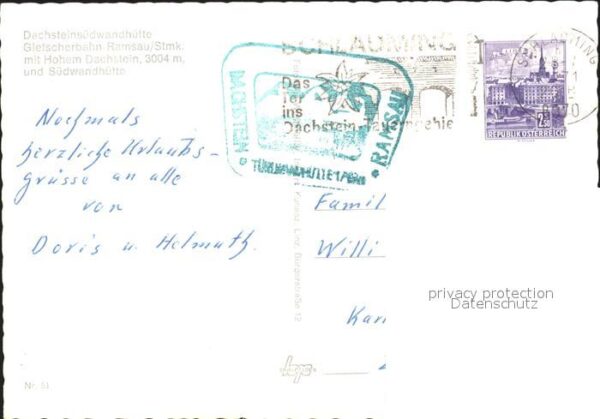 Dachsteinsüdwandhütte
Gletscherbahn Ramsau/Stmk.
mit Hohem Dachstein, 3004 m,
und Südwandhütte
Nochmals
herzliche Urlaubs-
grüsse an alle
von
Doris u. Helmuth.
SCHLADMING
Das
Tor
ins
Dachstein-Tauerngebiet
DACHSTEIN
RAMSAU
REPUBLIK ÖSTERREICH
Famil
Willi
Kar
privacy protection
Datenschutz
Linz, Bürgerstraße 12
Nr. 51